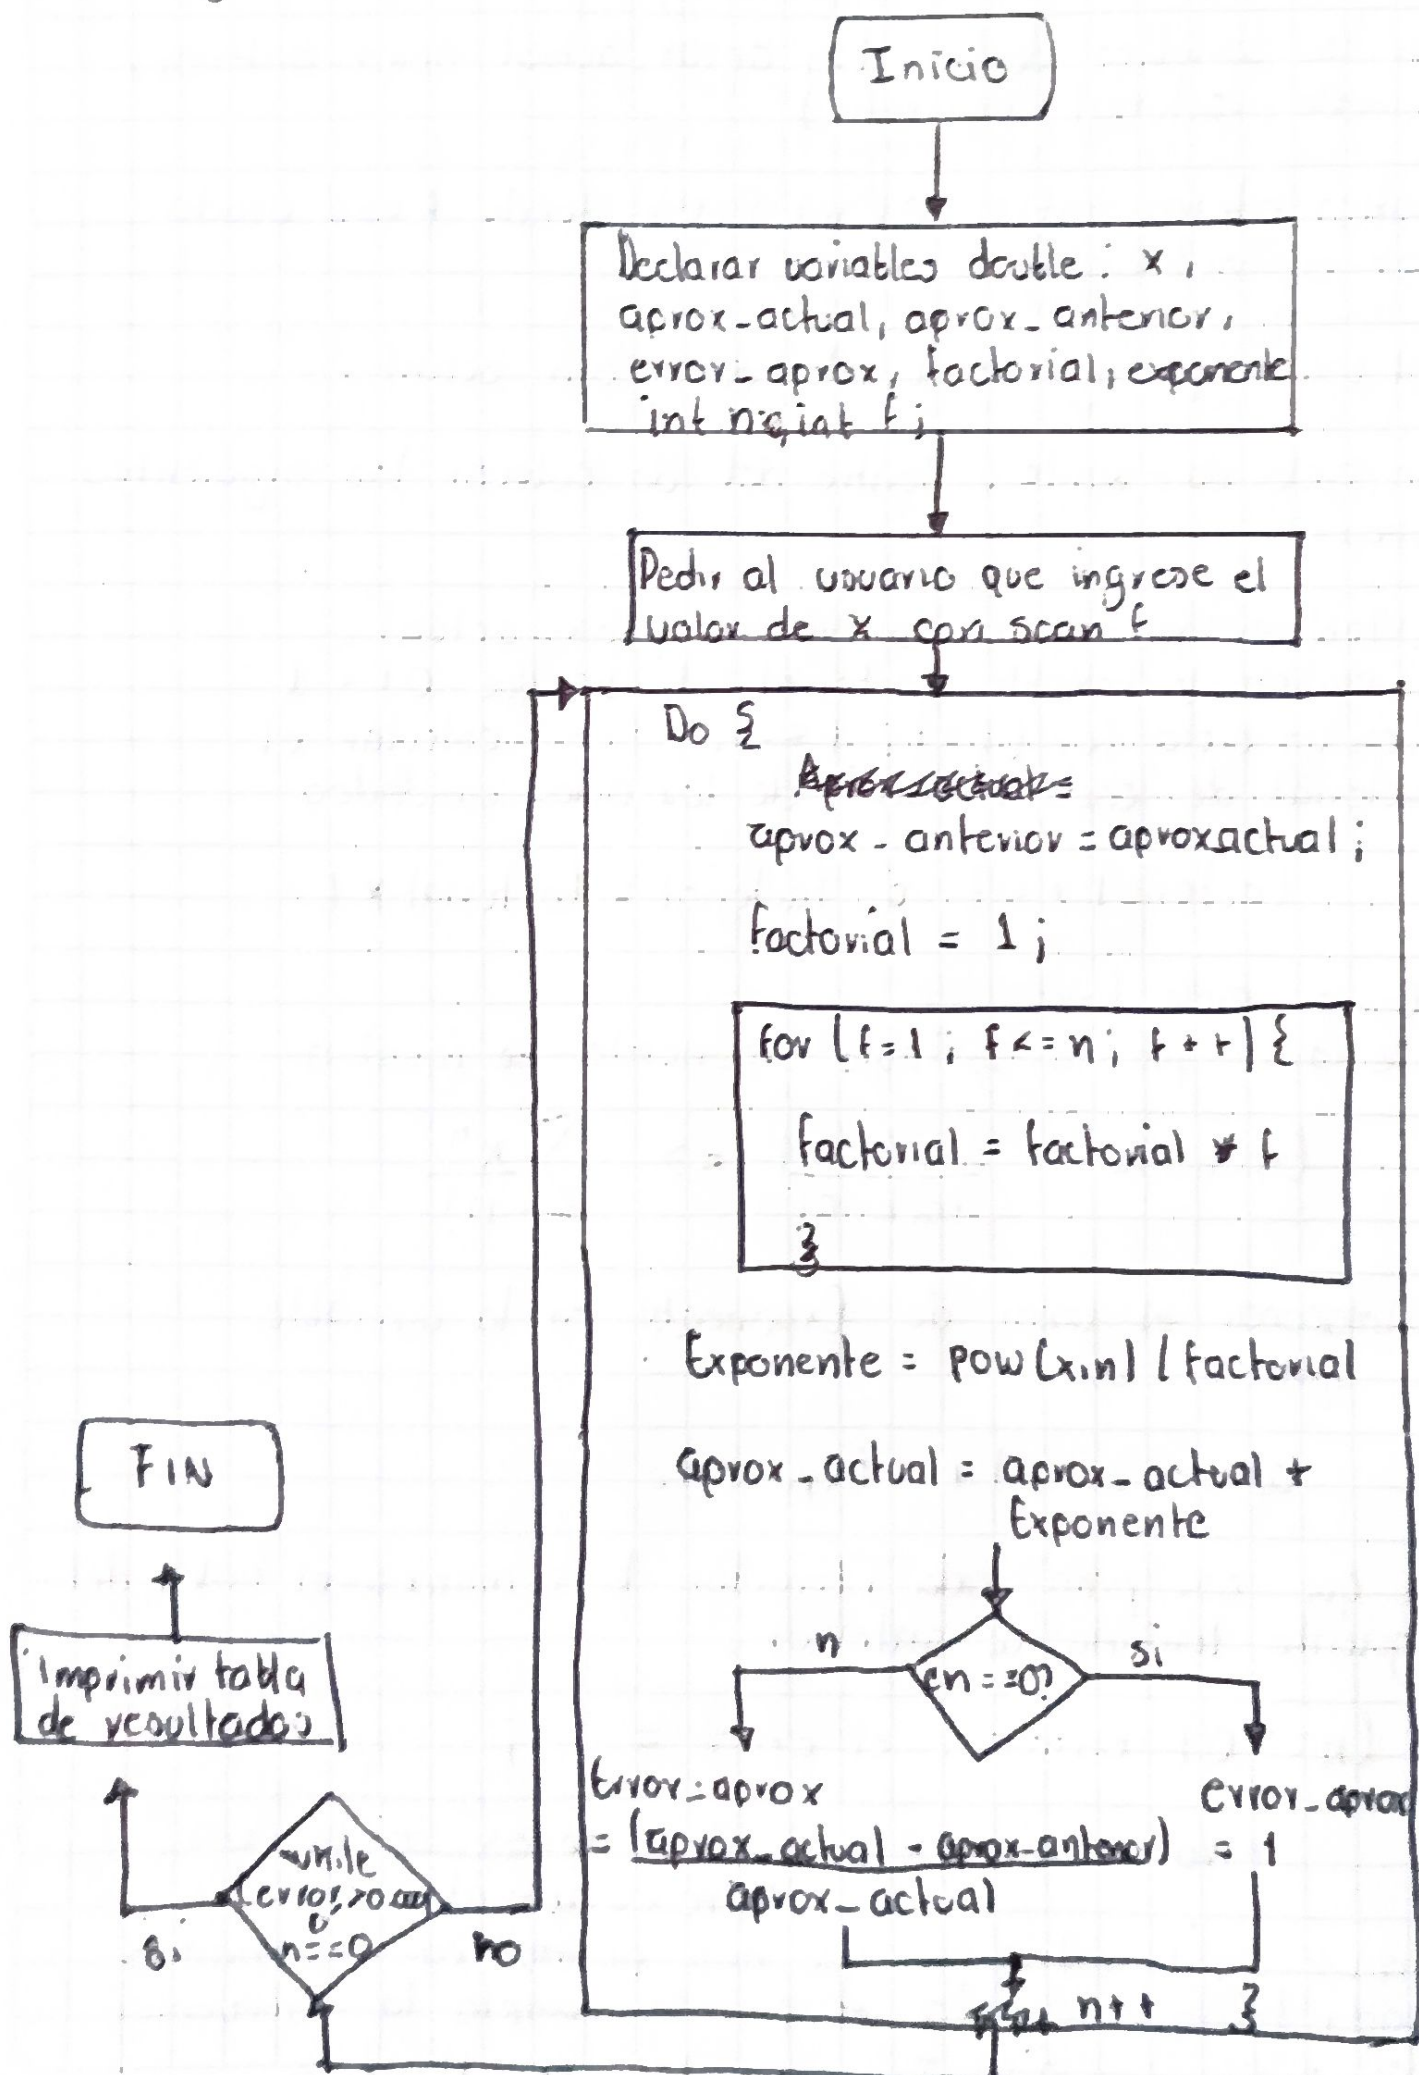 Inicio
Declarar variables double: x,
aprox-actual, aprox-anterior,
error-aprox, factorial, exponente
int n; int f;
Pedir al usuario que ingrese el
valor de x con scan f
Do {
aprox - anterior = aproxactual;
factorial = 1;
for (f=1; f<=n; f++) {
factorial = factorial * f
}
Exponente = pow(x,n) / factorial
aprox-actual = aprox-actual +
Exponente
¿n==0?
n
si
Error-aprox
= (aprox-actual - aprox-anterior)
aprox-actual
error-aprox
= 1
n++ }
while
n==0
si
no
Imprimir tabla
de resultados
FIN